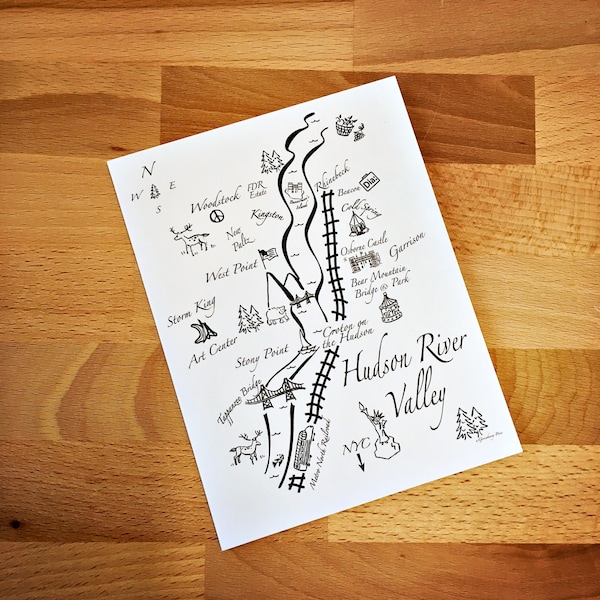 N
W E
S
Woodstock
FDR
Estate
Rhinebeck
Beacon
Dia:
Kingston
Cold Spring
New
Paltz
Osborne Castle
Garrison
West Point
Bear Mountain
Bridge & Park
Storm King
Art Center
Stony Point
Croton on
the Hudson
Hudson River
Valley
Tappanzee Bridge
Metro North Railroad
NYC